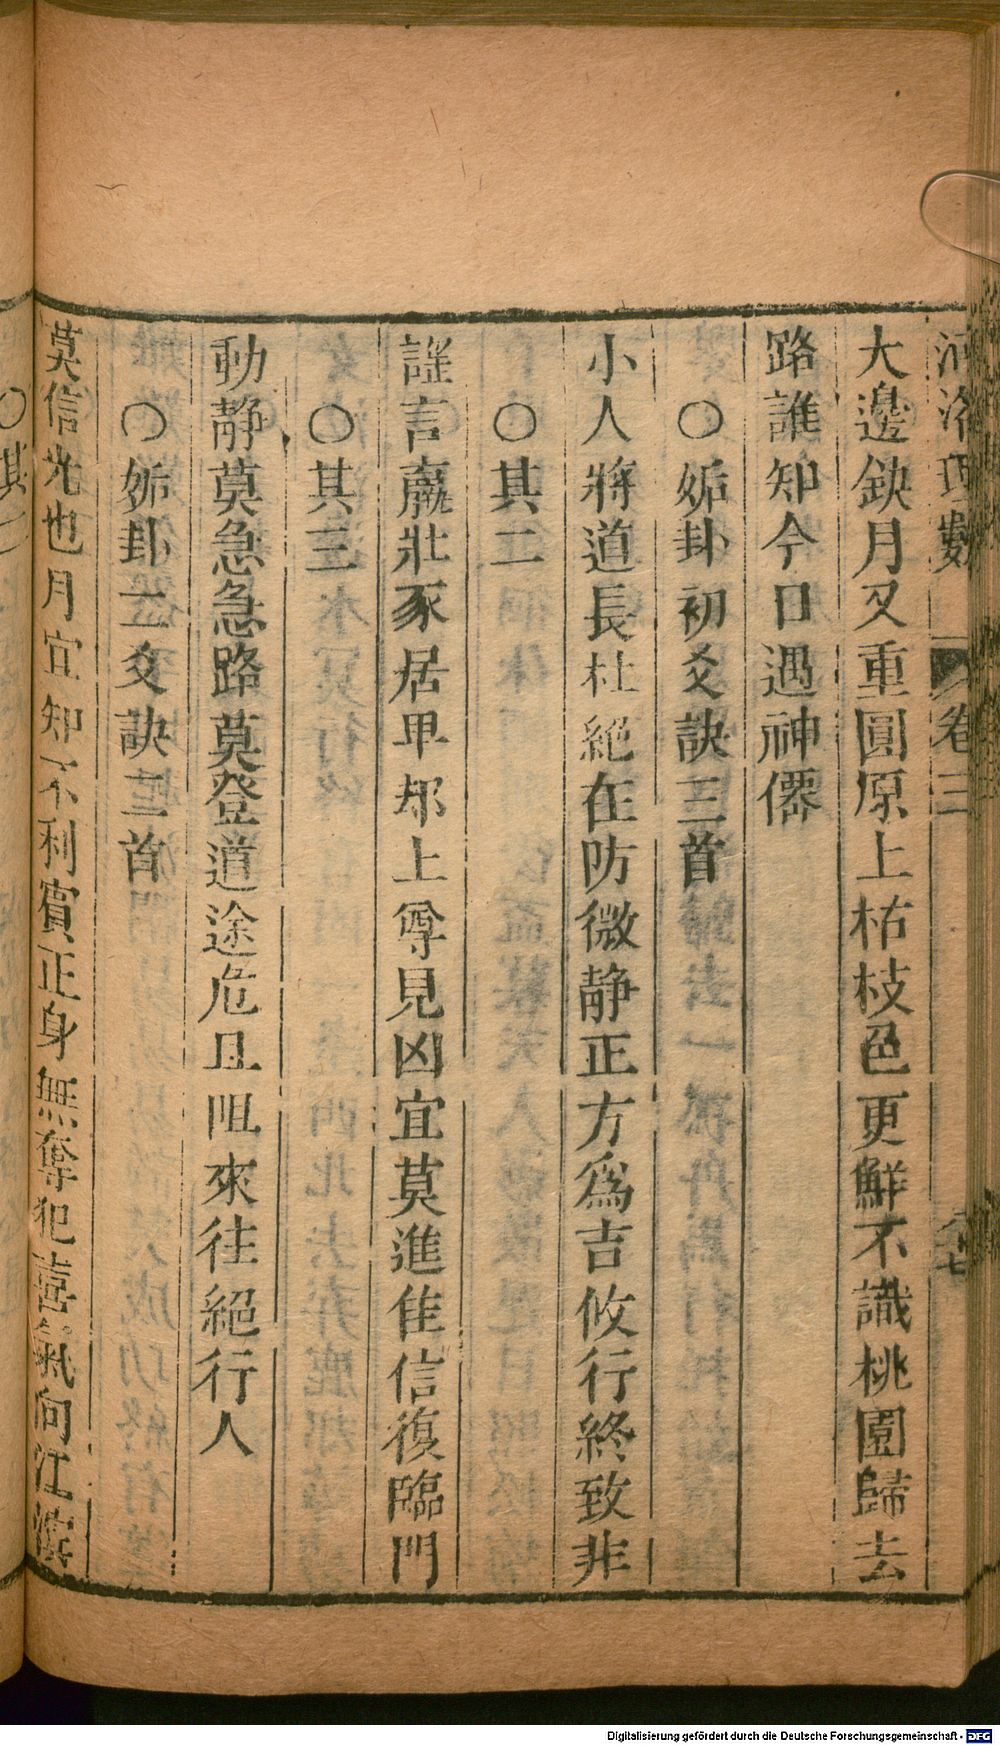 河洛理數 卷三
大邊鈌月又重圓原上枯枝色更鮮不識桃園歸去
路誰知今日遇神僊
○姤卦初爻訣三首
小人將道長杜絕在防微靜正方爲吉攸行終致非
○其二
謹言羸壯豕居甲却上尊見凶宜莫進隹信復臨門
○其三
動靜莫急急路莫登道途危且阻來往絕行人
○姤卦二爻訣二首
莫信光也月宜知不利賓正身無奪犯喜氣向江濱
○其二
Digitalisierung gefördert durch die Deutsche Forschungsgemeinschaft - DFG